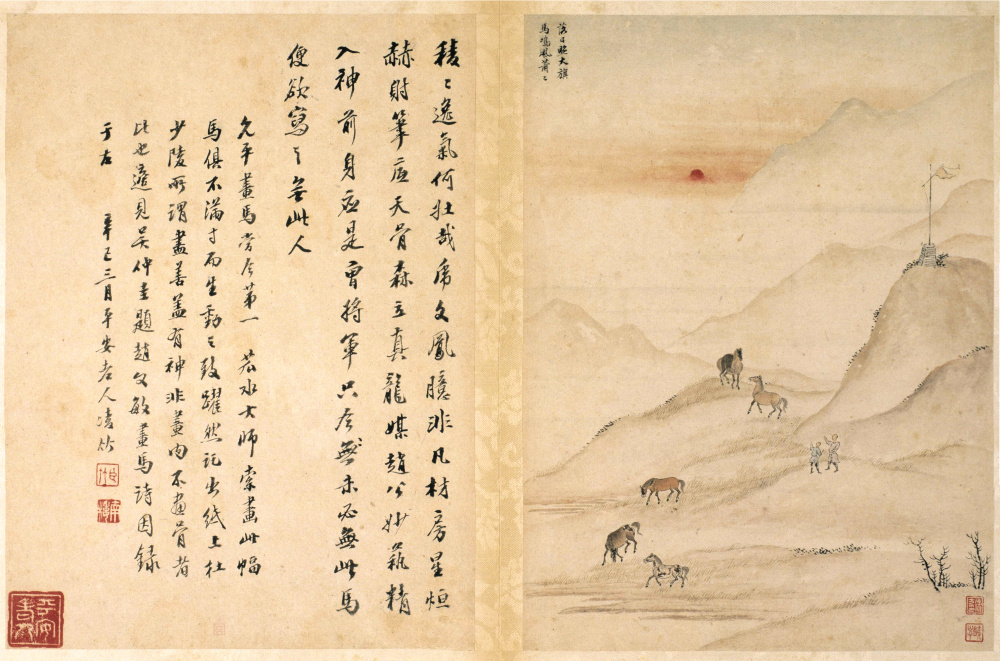 落日照大旗
馬鳴風蕭〻
稜〻逸氣何壯哉虎文鳳臆非凡材房星烜
赫射筆底天骨森立真龍媒趙公妙藝精
入神前身應是曹將軍只今未必無此馬
便欲寫之無此人
允平畫馬當今第一 若水大師索畫此幅
馬俱不滿寸而生動之致躍然託出紙上杜
少陵所謂畫善蓋有神非畫肉不畫骨者
比也適見吳仲圭題趙文敏畫馬詩因錄
于左 辛巳三月平安老人
平安書